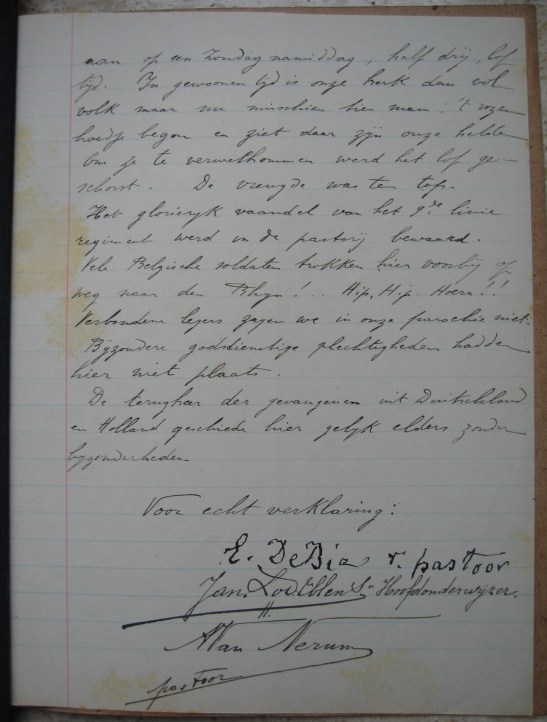 aan op een Zondag namiddag, half drij, lof
tijd. In gewoonen tijd is onze kerk dan vol
volk maar nu misschien tien man: 't rozen
hoedje begon en ziet daar zijn onze helden
Om ze te verwelkommen werd het lof ge-
schorst. De vreugde was ten top.
Het glorierijk vaandel van het 9de linie
regiment werd in de pastorij bewaard.
Vele Belgische soldaten trokken hier voorbij op
weg naar den Rhijn!.. Hip, Hip. Hoera!!
Verbondene legers zagen we in onze parochie niet.
Bijzondere godsdienstige plechtigheden hadden
hier niet plaats.
De terugkeer der gevangenen uit Duitschland
en Holland geschiede hier gelijk elders zonder
bijzonderheden
Voor echt verklaring:
E. DeBie r. pastoor
Jan. Hoofdonderwijzer.
A Van Nerum
pastoor